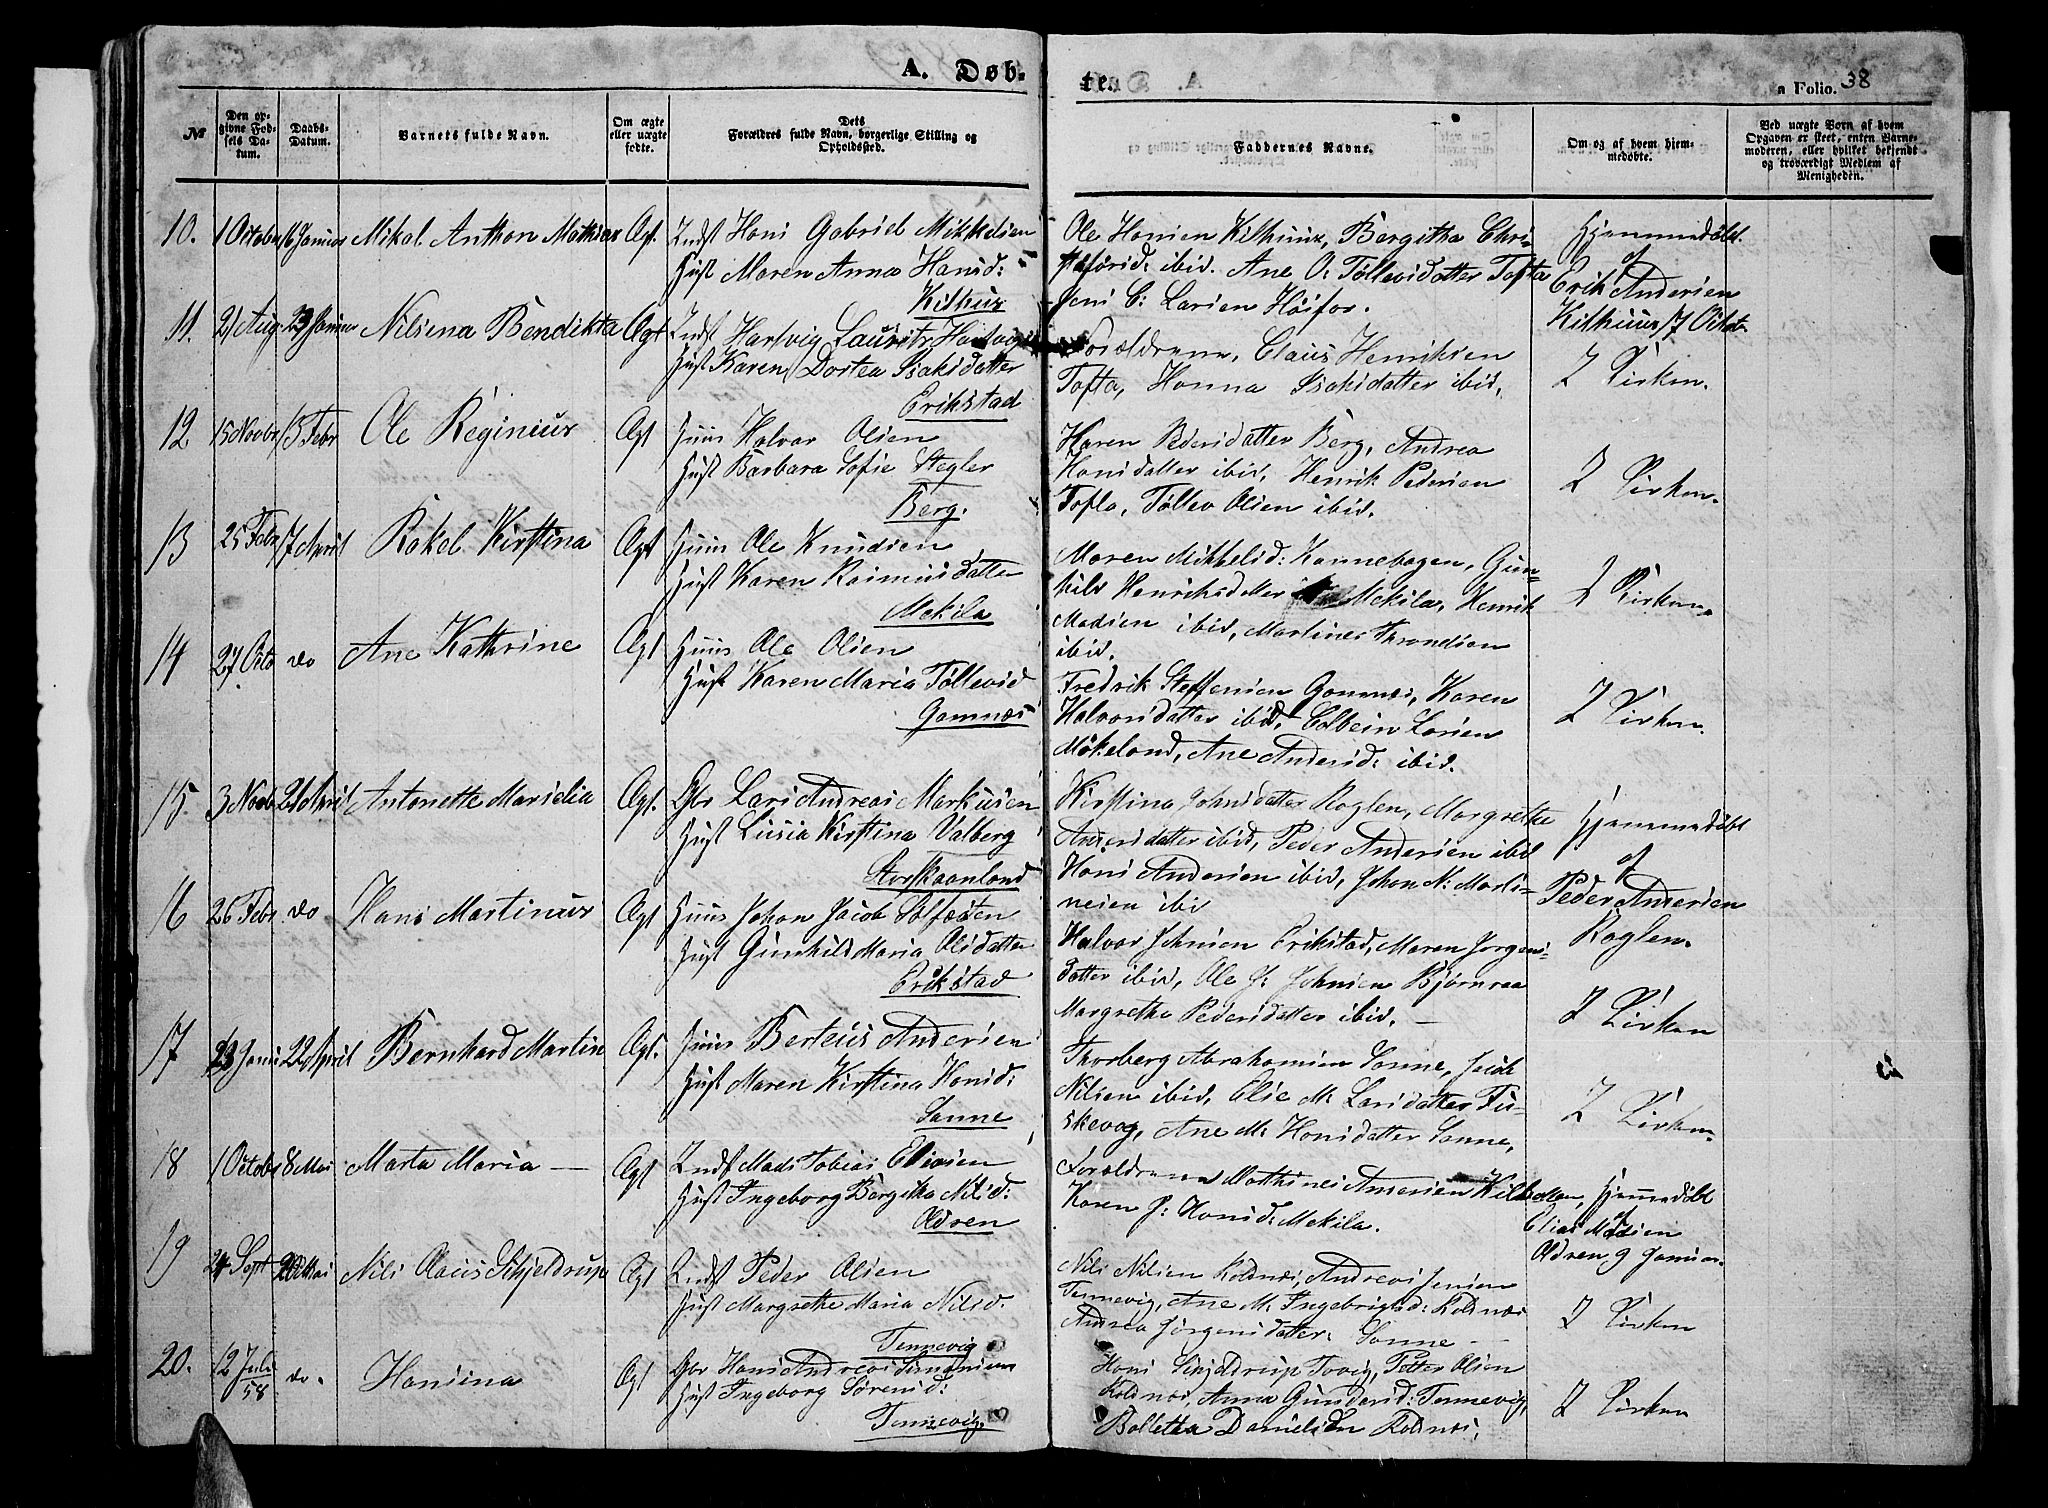 A. Døb-
te.
a Folio. 38
№
Den opgivne Fødsels Datum.
Daabs-Datum.
Barnets fulde Navn.
Om ægte eller uægte fødte.
Dets Forældres fulde Navn, borgerlige Stilling og Opholdssted.
Faddernes Navne.
Om og af hvem hjemmedøbte.
Ved uægte Børn af hvem Opgaven er skeet, enten Barnemoderen, eller hvilket bekjendt og troværdigt Medlem af Menigheden.
10. 1 Octobr 16 Januar Mikal Anthon Mathias Ægt. Indst Hans Gabriel Mikkelsen
Hust Maren Anna Hansd:
Kilhus
Ole Hansen Kilhuus, Bergitha Chri-
stofersd: ibid. Ane O: Tøllevsdatter Tofta
Jens C: Larsen Høifos.
Hjemmedøbt
af
Erik Andersen
Kilhuus 17 Octobr
11. 21 Aug 23 Januar Nilsena Bendikta Ægt Indst Hartvig Lauritz Hartvigs
Hust Karen Dortea Isaksdatter
Erikstad
Forældrene, Claus Henriksen
Tofta, Hanna Isaksdatter ibid.
I Kirken.
12 15 Novbr 15 Febr Ole Reginius Ægt Huus Halvor Olsen
Hust Barbara Sofie Stegler
Berg.
Karen Pedersdatter Berg, Andrea
Hansdatter ibid, Henrik Pedersen
Tofta, Tøllev Olsen ibid.
I Kirken.
13 25 Febr 17 April Rakel Kirstina Ægt Huus Ole Knudsen
Hust Karen Rasmusdatter
Mekila
Maren Mikkelsd: Kannebogen, Gun-
hild Henriksdatter Mekila, Henrik
Madsen ibid, Martines Throndsen
ibid.
I Kirken.
14 27 Octo do Ane Kathrine Ægt Huus Ole Olsen
Hust Karen Maria Tøllevsd
Gamnes
Fredrik Steffensen Gamnes, Karen
Halvorsdatter ibid, Colbein Larsen
Møkeland, Ane Andersd: ibid.
I Kirken.
15. 3 Novb 21 April Antonette Marselia Ægt. Gbr Lars Andreas Markusen
Hust Lusia Kirstina Valberg
Storskaanland
Kirstina Johnsdatter Roglen, Margrethe
Andersdatter ibid, Peder Andersen ibid
Hans Andersen ibid, Johan N: Marti-
nesen ibi
Hjemmedøbt
af
Peder Andersen
Roglen.
16 26 Febr do Hans Martinus Ægt Huus Johan Jacob Solfesten
Hust Gunhild Maria Olsdatter
Erikstad
Halvor Johnsen Erikstad, Maren Jørgens-
datter ibid, Ole J: Johnsen Bjørnraa
Margretha Pedersdatter ibid. —
I Kirken
17 23 Janua 22 April Bernhard Martin Ægt. Huus Berteus Andersen
Hust Maren Kirstina Hansd:
Sanne
Thorberg Abrahamsen Sanne, Jacob
Nilsen ibid, Elie M: Larsdatter Fu-
skevog, Ane M: Hansdatter Sanne,
I Kirken.
18 1 Octobr 8 Mai Marta Maria — Ægt Indst Mads Tobias Eliasen
Hust Ingeborg Bergitha Nilsd:
Oldren
Forældrene Mathines Andersen
Karen J: Hansd: Mekila.
Hjemmedøbt
af
Elias Madsen
Oldren 9 Januar.
19 24 Sept 20 Mai Nils Claus Schjeldrup Ægt Indst Peder Olsen
Hust Margrethe Maria Nilsd.
Tennevig
Nils Nilsen Roldnæs, Andreas Jensen
Tennevig, Ane M. Ingebrigtsd: Roldnæs
Andrea Jørgensdatter: Sanne —
I Kirken
20. 12 Juli 58 do. Hansina Ægt Gbr Hans Andreas Simonsen
Hust Ingeborg Sørensd:
Tennevig
Hans Schjeldrup Trøvig, Petter Olsen
Roldnæs, Anna Gundersd: Tennevig,
Bolletha Danielsen Roldnæs,
I Kirken